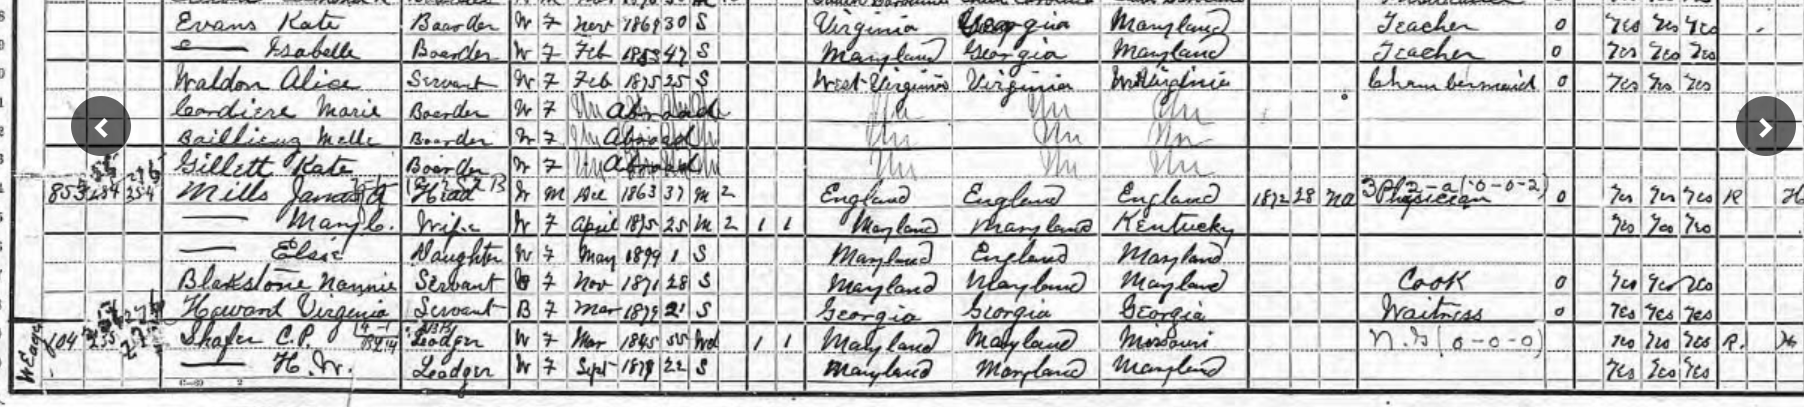 Evans Kate Boarder W F Nov 1869 30 S Virginia Georgia Maryland Teacher 0 Yes Yes Yes
— Isabelle Boarder W F Feb 1853 47 S Maryland Georgia Maryland Teacher 0 Yes Yes Yes
Waldon Alice Servant W F Feb 1875 25 S West Virginia Virginia W Virginia Chambermaid 0 Yes Yes Yes
Cordiere Marie Boarder W F Abroad Un Un Un
Melle Boarder W F Abroad Un Un Un
Gillett Kate Boarder W F Abroad Un Un Un
853 Mills James Head W M Dec 1863 37 M 2 England England England 1872 28 Na Physician 0 Yes Yes Yes R H
— Mary C. Wife W F April 1875 25 M 2 1 1 Maryland Maryland Kentucky Yes Yes Yes
— Elsie Daughter W F May 1899 1 S Maryland England Maryland
Blakstone Nannie Servant F Nov 1871 28 S Maryland Maryland Maryland Cook 0 Yes Yes Yes
Howard Virginia Servant B F Mar 1879 21 S Georgia Georgia Georgia Waitress 0 Yes Yes Yes
Shafer C.P. Lodger W F Mar 1845 55 Wd 1 1 Maryland Maryland Missouri (0-0-0) Yes Yes Yes R. H
— H.W. Lodger W F Sept 22 S Maryland Maryland Maryland Yes Yes Yes